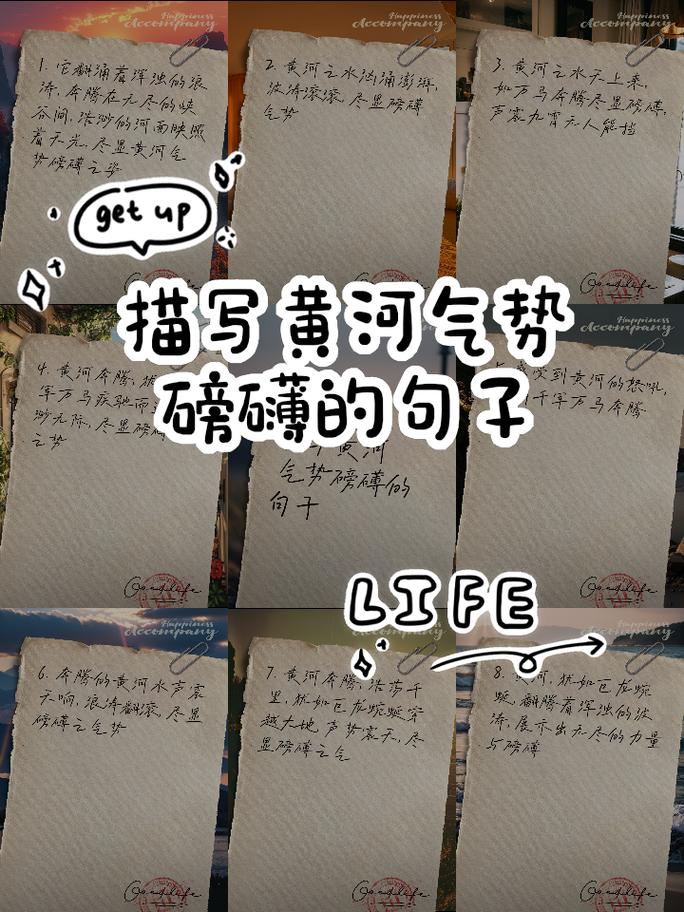 Happiness
Accompany
1. 它翻涌着浑浊的浪
涛，奔腾在无尽的峡
谷间，浩渺的河面映照
着天光，尽显黄河气
势磅礴之姿
Goodlife
Happiness
Accompany
2. 黄河之水汹涌澎湃，
波涛滚滚，尽显磅礴
气势
Goodlife
Happiness
Accompany
3. 黄河之水天上来，
如万马奔腾尽显磅礴，
声震九霄无人能挡
Goodlife
get up
描写黄河气势
磅礴的句子
4. 黄河奔腾，犹
军万马疾驰而
渺无际，尽显磅礴
之势
Goodlife
黄河
气势磅礴的
句子
Happiness
Accompany
感受到黄河的怒吼，
千军万马奔腾
Goodlife
LIFE
Happiness
Accompany
6. 奔腾的黄河水声震
天响，浪涛翻滚，尽显
磅礴之气势
Goodlife
Happiness
Accompany
7. 黄河奔腾，浩莎千
里，犹如巨龙蜿蜒穿
越大地，声势震天，尽
显磅礴之气
Goodlife
Happiness
Accompany
8. 黄河，犹如巨龙蜿
蜒，翻腾着浑浊的波
涛，展示出无尽的力量
与磅礴
Goodlife